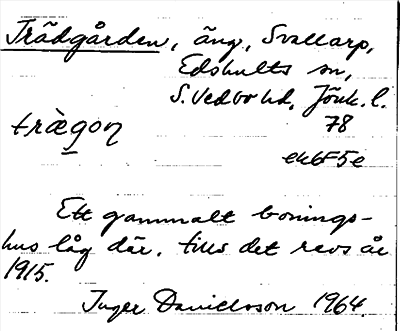 Trädgården, äng, Svallarp,
Edshults sn,
S. Vedbo hd, Jönk. l.
trägon 78
ek6F5e
Ett gammalt bonings-
hus låg där, tills det revs år
1915.
Inger Davidsson 1964.